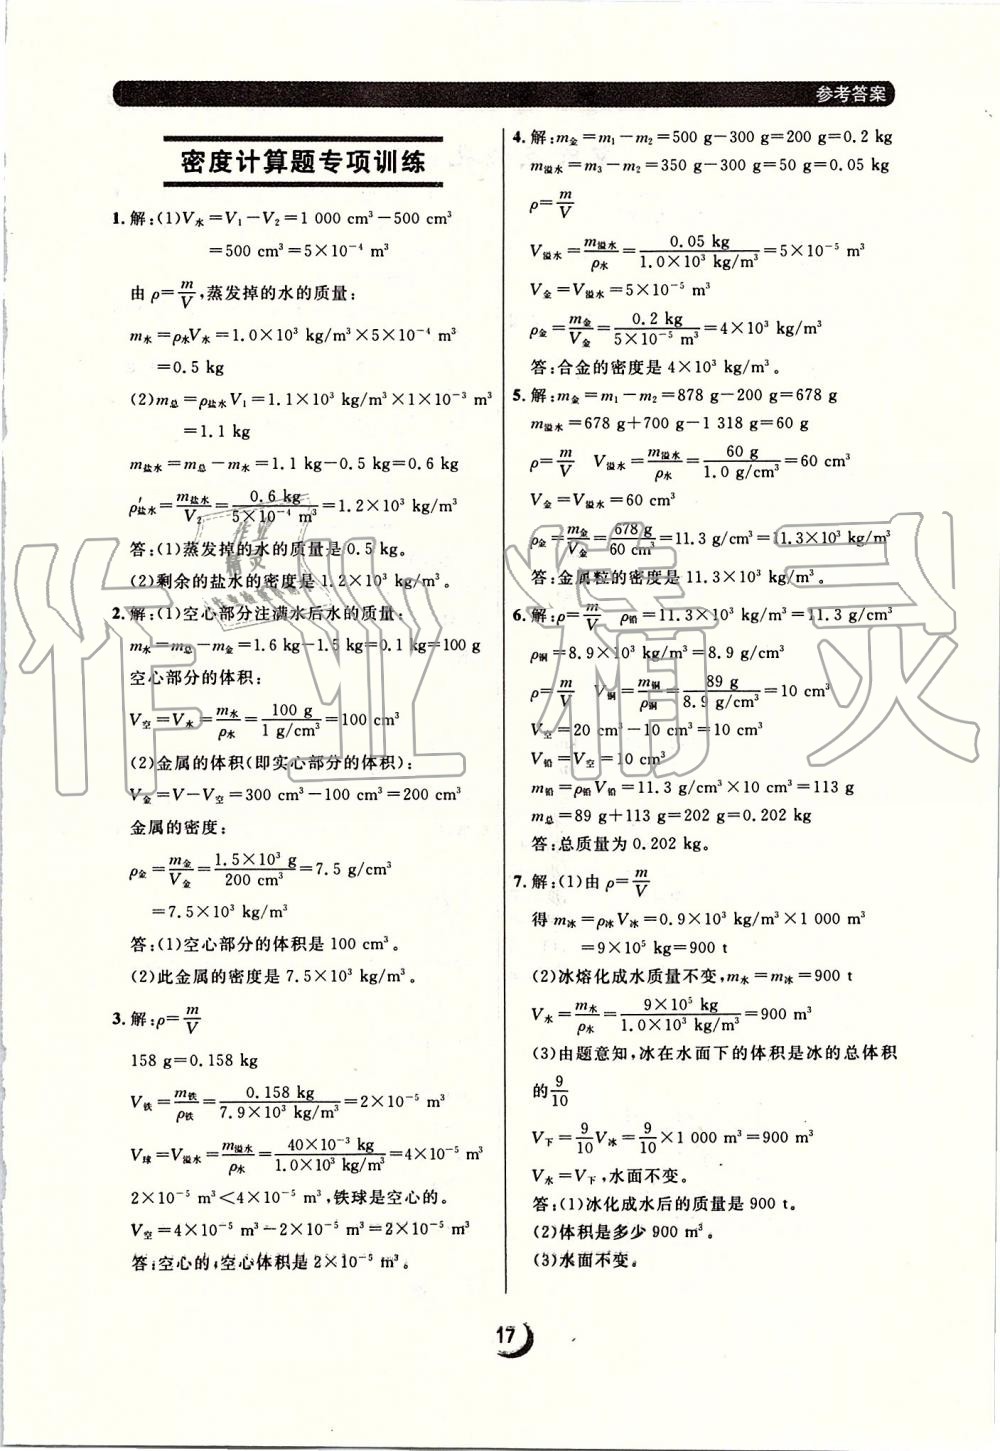 参考答案
密度计算题专项训练
1. 解:(1)V水=V₁-V₂=1 000 cm³-500 cm³
=500 cm³=5×10⁻⁴ m³
由 ρ=m/V,蒸发掉的水的质量:
m水=ρ水V水=1.0×10³ kg/m³×5×10⁻⁴ m³
=0.5 kg
(2)m总=ρ盐水V₁=1.1×10³ kg/m³×1×10⁻³ m³
=1.1 kg
m盐水=m总-m水=1.1 kg-0.5 kg=0.6 kg
ρ′盐水=m盐水/V₂=0.6 kg/5×10⁻⁴ m³=1.2×10³ kg/m³
答:(1)蒸发掉的水的质量是 0.5 kg。
(2)剩余的盐水的密度是 1.2×10³ kg/m³。
2. 解:(1)空心部分注满水后水的质量:
m水=m总-m金=1.6 kg-1.5 kg=0.1 kg=100 g
空心部分的体积:
V空=V水=m水/ρ水=100 g/1 g/cm³=100 cm³
(2)金属的体积(即实心部分的体积):
V金=V-V空=300 cm³-100 cm³=200 cm³
金属的密度:
ρ金=m金/V金=1.5×10³ g/200 cm³=7.5 g/cm³
=7.5×10³ kg/m³
答:(1)空心部分的体积是 100 cm³。
(2)此金属的密度是 7.5×10³ kg/m³。
3. 解:ρ=m/V
158 g=0.158 kg
V铁=m铁/ρ铁=0.158 kg/7.9×10³ kg/m³=2×10⁻⁵ m³
V球=V溢水=m溢水/ρ水=40×10⁻³ kg/1.0×10³ kg/m³=4×10⁻⁵ m³
2×10⁻⁵ m³<4×10⁻⁵ m³,铁球是空心的。
V空=4×10⁻⁵ m³-2×10⁻⁵ m³=2×10⁻⁵ m³
答:空心的,空心体积是 2×10⁻⁵ m³。
4. 解:m金=m₁-m₂=500 g-300 g=200 g=0.2 kg
m溢水=m₃-m₂=350 g-300 g=50 g=0.05 kg
ρ=m/V
V溢水=m溢水/ρ水=0.05 kg/1.0×10³ kg/m³=5×10⁻⁵ m³
V金=V溢水=5×10⁻⁵ m³
ρ金=m金/V金=0.2 kg/5×10⁻⁵ m³=4×10³ kg/m³
答:合金的密度是 4×10³ kg/m³。
5. 解:m金=m₁-m₂=878 g-200 g=678 g
m溢水=678 g+700 g-1 318 g=60 g
ρ=m/V V溢水=m溢水/ρ水=60 g/1.0 g/cm³=60 cm³
V金=V溢水=60 cm³
ρ金=m金/V金=678 g/60 cm³=11.3 g/cm³=11.3×10³ kg/m³
答:金属粒的密度是 11.3×10³ kg/m³。
6. 解:ρ=m/V ρ铅=11.3×10³ kg/m³=11.3 g/cm³
ρ铜=8.9×10³ kg/m³=8.9 g/cm³
ρ=m/V V铜=m铜/ρ铜=89 g/8.9 g/cm³=10 cm³
V空=20 cm³-10 cm³=10 cm³
V铅=V空=10 cm³
m铅=ρ铅V铅=11.3 g/cm³×10 cm³=113 g
m总=89 g+113 g=202 g=0.202 kg
答:总质量为 0.202 kg。
7. 解:(1)由 ρ=m/V
得 m冰=ρ冰V冰=0.9×10³ kg/m³×1 000 m³
=9×10⁵ kg=900 t
(2)冰熔化成水质量不变,m水=m冰=900 t
V水=m水/ρ水=9×10⁵ kg/1.0×10³ kg/m³=900 m³
(3)由题意知,冰在水面下的体积是冰的总体积
的9/10
V下=9/10V冰=9/10×1 000 m³=900 m³
V水=V下,水面不变。
答:(1)冰化成水后的质量是 900 t。
(2)体积是多少 900 m³。
(3)水面不变。
17
作业精灵